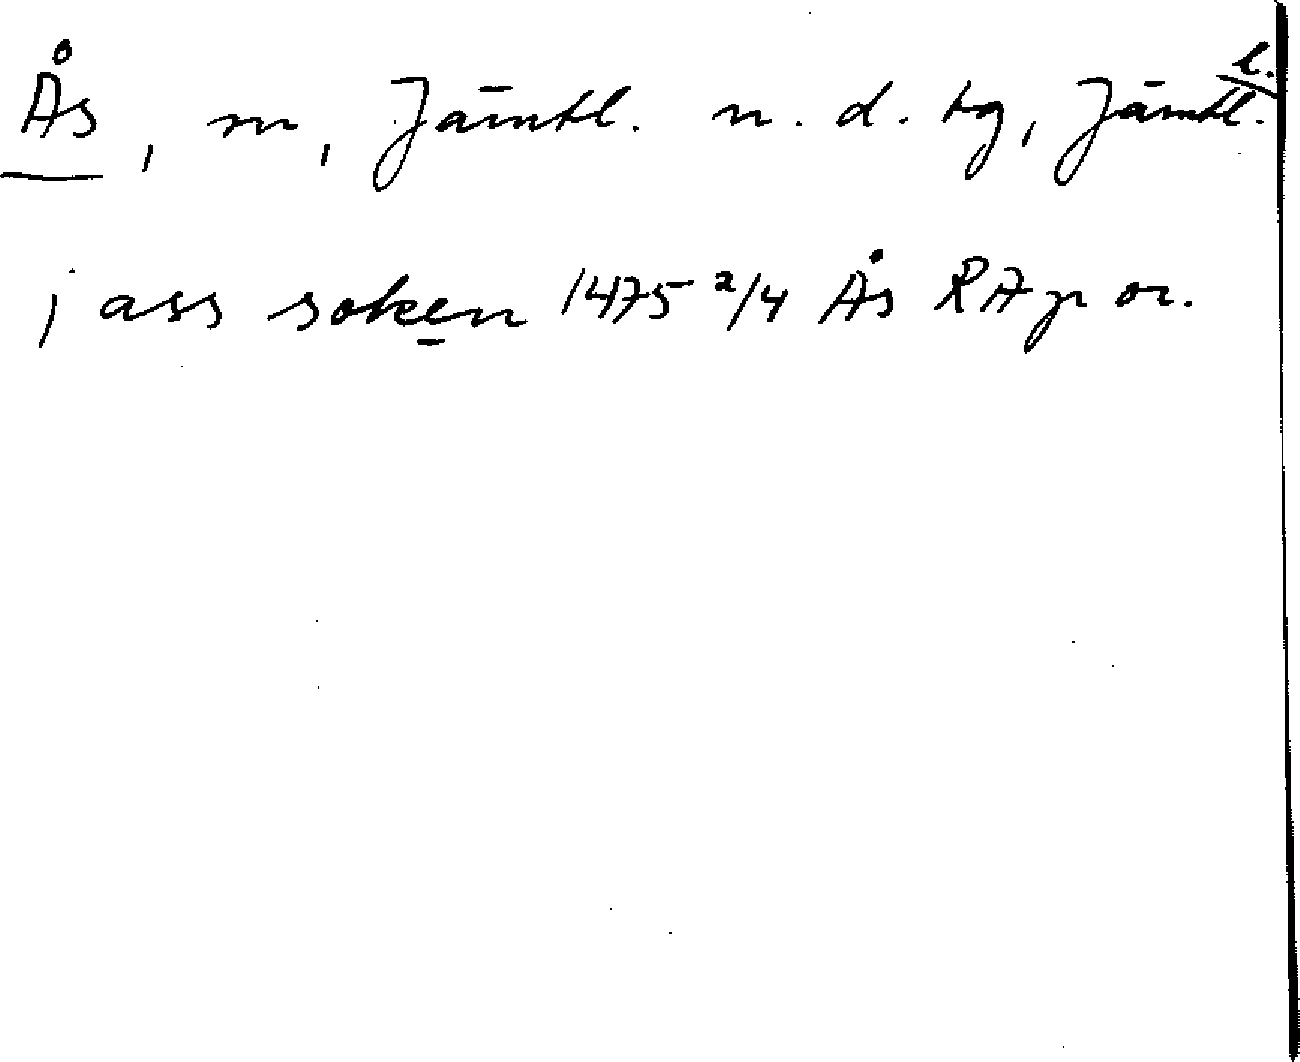 Ås, sn, Jämtl. n. d. tg, Jämtl. l.
j ass soken 1475 2/4 Ås RAp or.